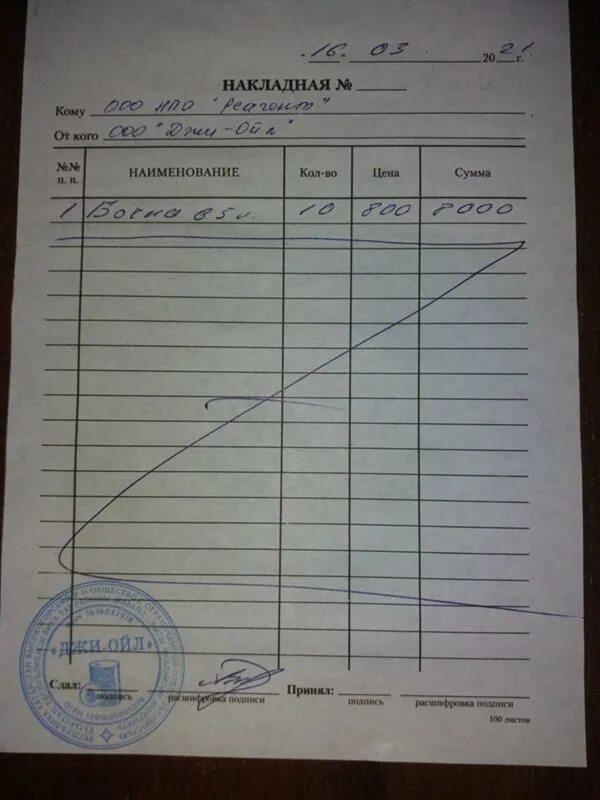 16. 03 2021 г.
НАКЛАДНАЯ №
Кому ООО НПО "Реагент"
От кого ООО "Джи-Ойл"
№№ п. п. НАИМЕНОВАНИЕ Кол-во Цена Сумма
1 Бочка 65 л. 10 800 8000
«ДЖИ-ОЙЛ»
Сдал: Принял:
подпись расшифровка подписи подпись расшифровка подписи
100 листов